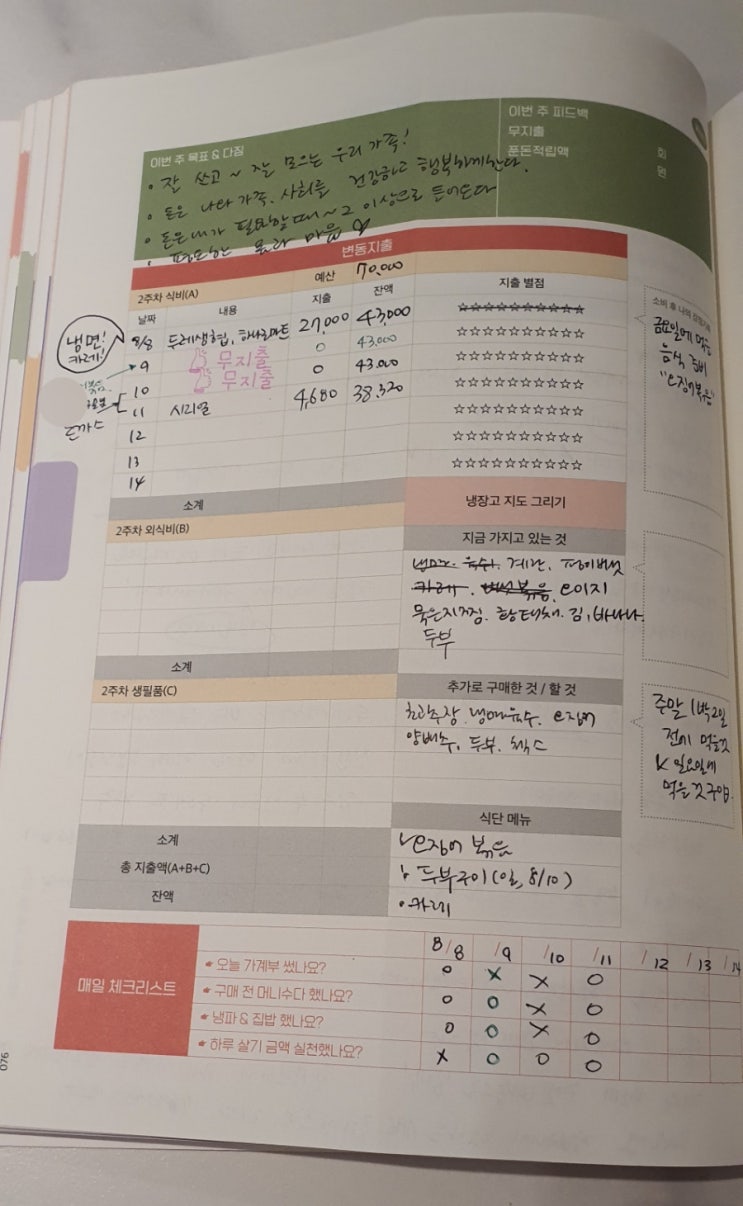 이번 주 목표 & 다짐
• 잘 쓰고 ~ 잘 모으는 우리 가족!
• 돈은 나와 가족, 사회를 건강하고 행복하게한다.
• 돈은 내가 필요할 때 ~ 그 이상으로 들어온다
이번 주 피드백
무지출 회
푼돈적립액 원
변동지출
2주차 식비(A) 예산 70,000
날짜 내용 지출 잔액 지출 별점
냉면!
카레!
8/8 두레생협, 하나로마트 27,000 43,000 ☆☆☆☆☆☆☆☆☆☆
9 무지출 0 43,000 ☆☆☆☆☆☆☆☆☆☆
10 무지출 0 43,000 ☆☆☆☆☆☆☆☆☆☆
11 시리얼 4,680 38,320 ☆☆☆☆☆☆☆☆☆☆
돈까스
12 ☆☆☆☆☆☆☆☆☆☆
13 ☆☆☆☆☆☆☆☆☆☆
14 ☆☆☆☆☆☆☆☆☆☆
소비 후 나의
금요일에 먹을
음식 준비
"오징어볶음"
소계
냉장고 지도 그리기
2주차 외식비(B)
지금 가지고 있는 것
냉면. 육수. 계란. 팽이버섯
카레. 버섯볶음. 오이지
묵은지찜. 황태채. 김, 바나나.
두부
소계
2주차 생필품(C)
추가로 구매한 것 / 할 것
초고추장. 냉면육수. 오징어
양배추, 두부. 첵스
주말 1박2일
전에 먹을것
& 일요일에
먹을것 구입.
식단 메뉴
오징어 볶음
두부구이(일, 8/10)
• 카레
소계
총 지출액(A+B+C)
잔액
매일 체크리스트
8/8 /9 /10 /11 /12 /13 /14
☛ 오늘 가계부 썼나요? O X X O
☛ 구매 전 머니수다 했나요? O O X O
☛ 냉파 & 집밥 했나요? O O X O
☛ 하루 살기 금액 실천했나요? X O O O
076